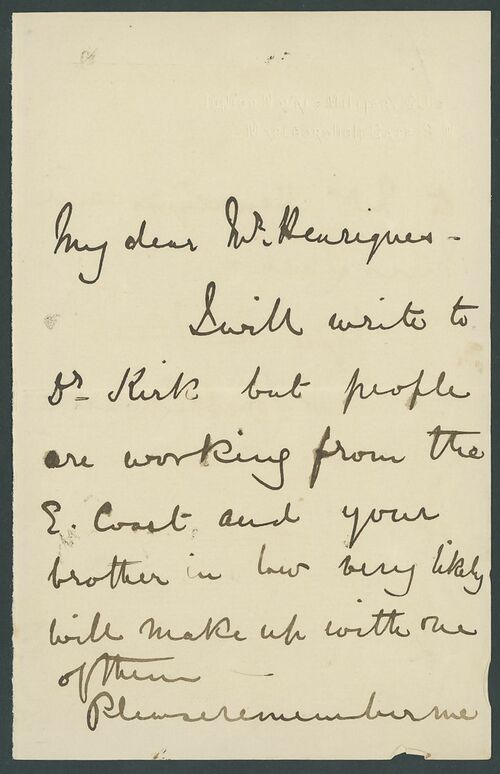 My dear Mr. Henriques -
I will write to
Dr Kirk but people
are working from the
E. Coast and your
brother in law very likely
will make up with one
of them
Please remember me